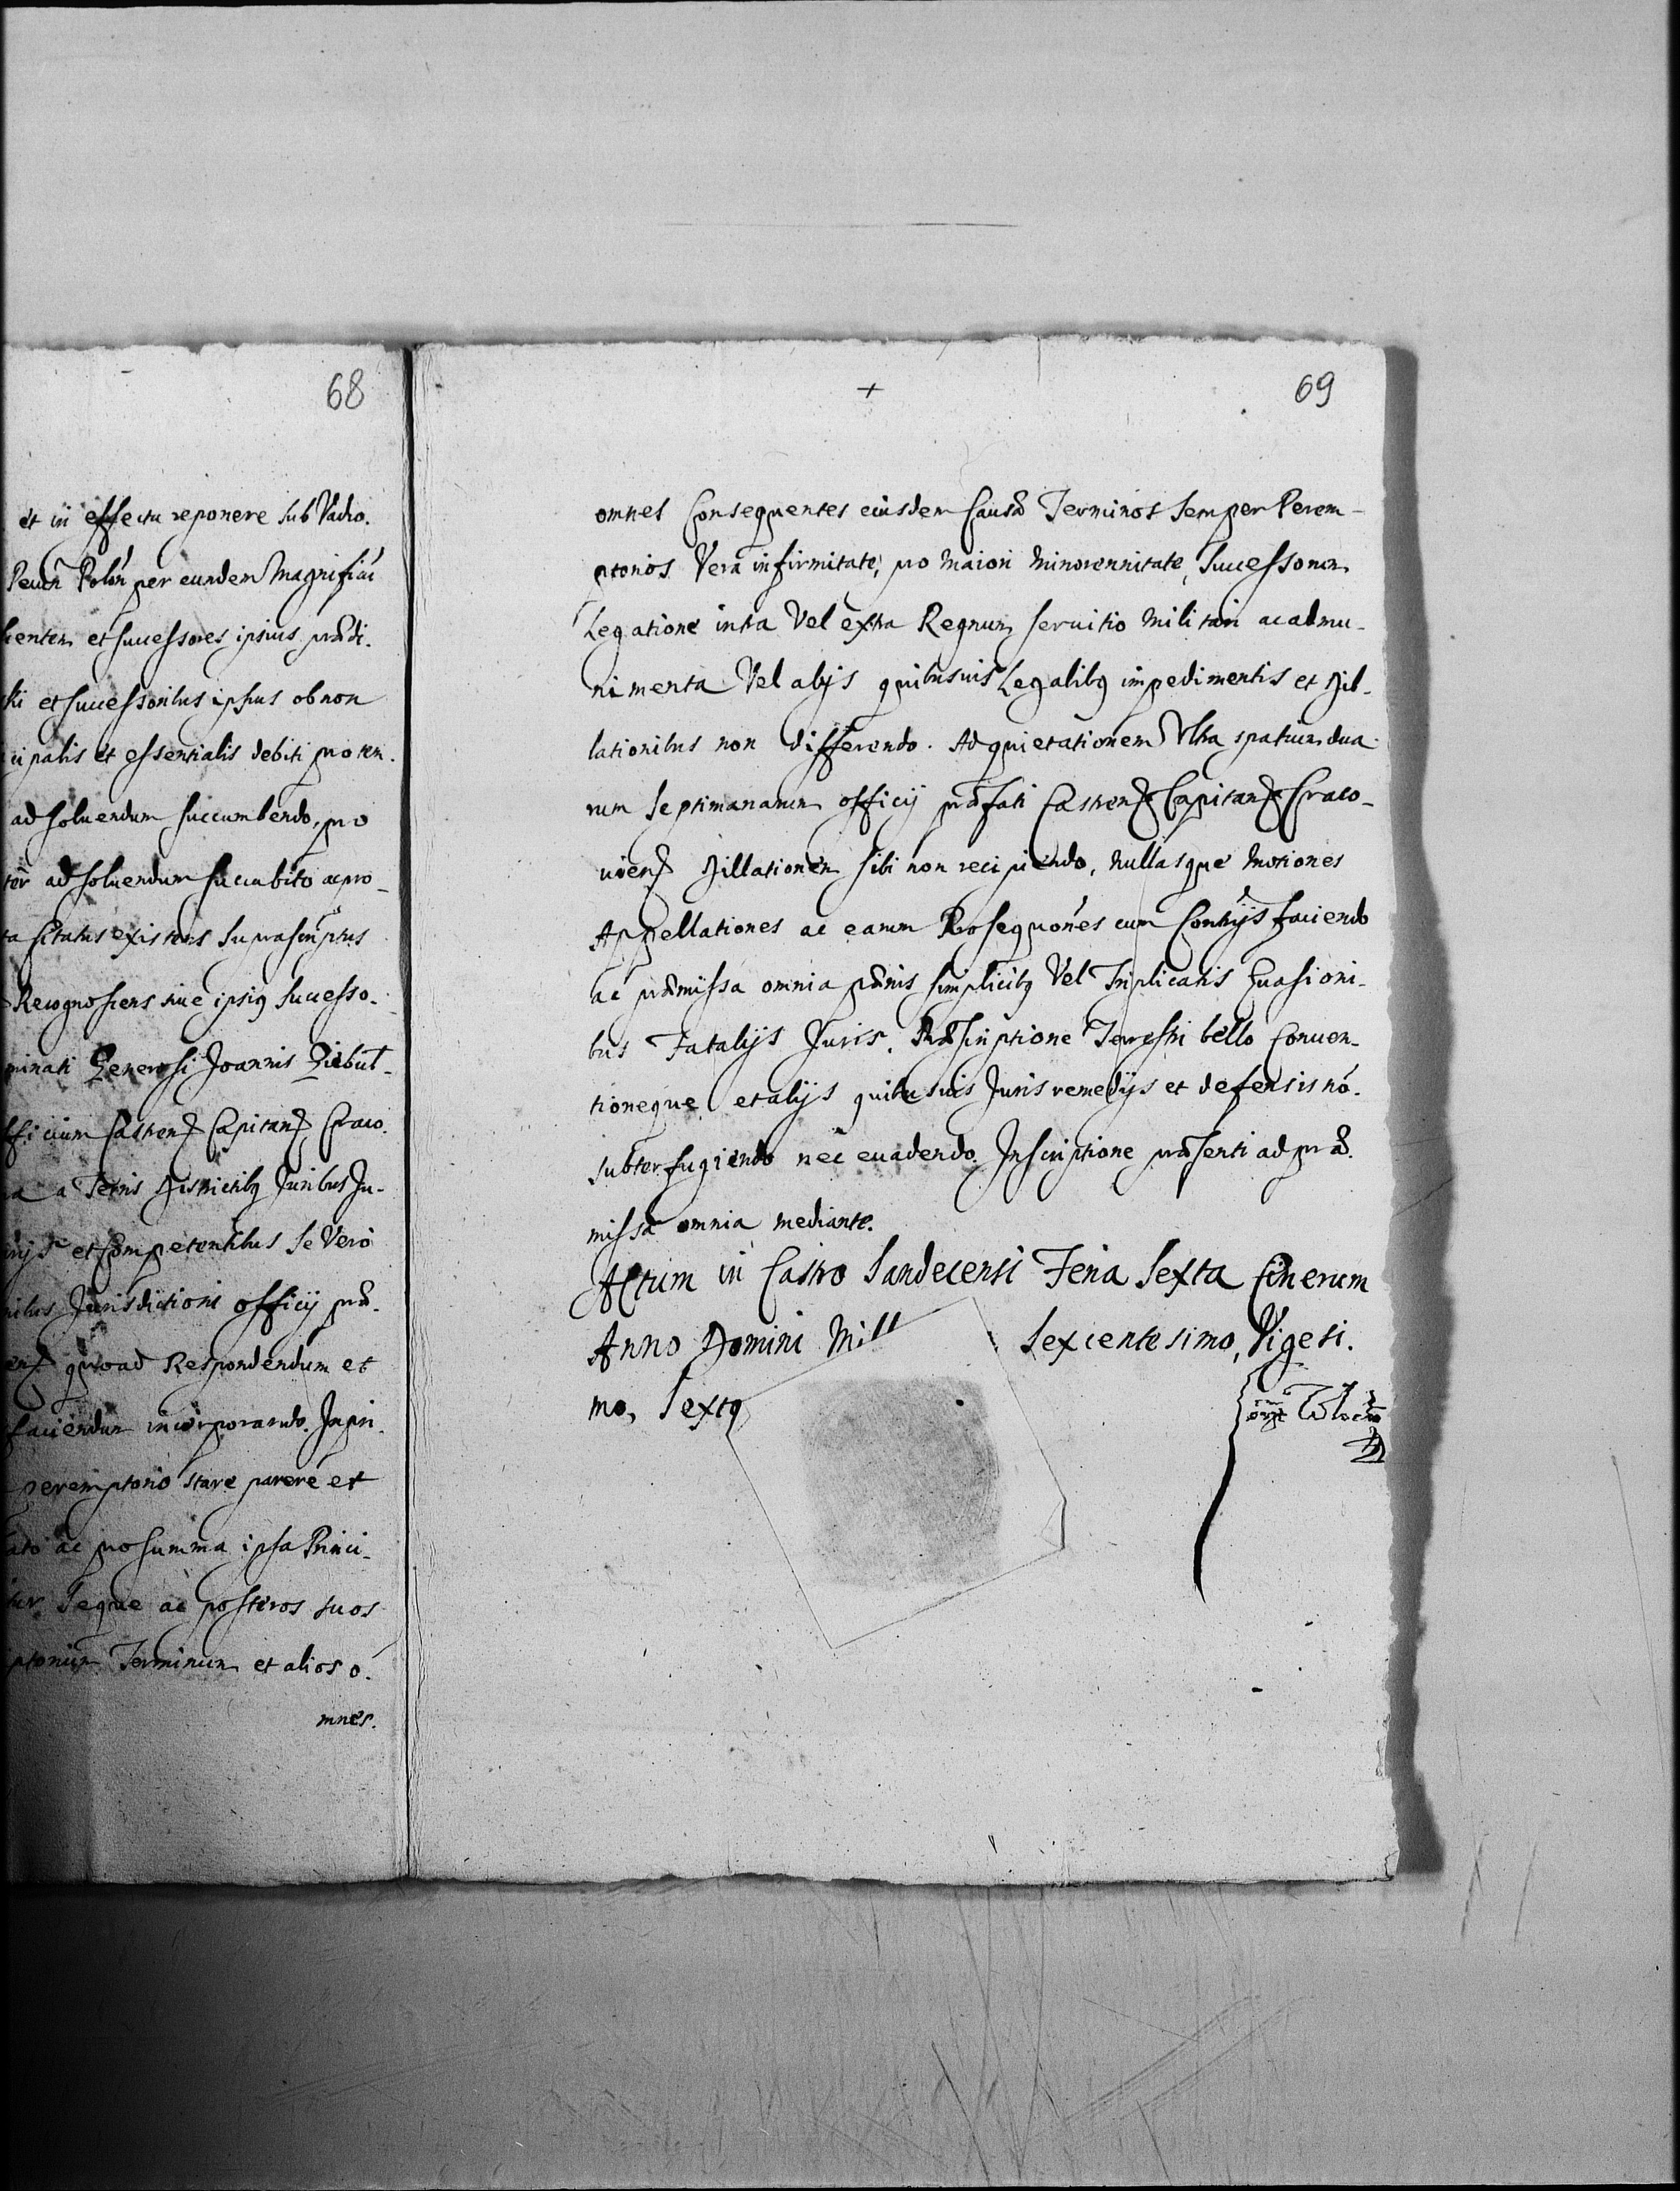 68
et in effectu reponere sub Vadio.
Pecun Polon per eundem Magnifici
et successores ipsius prædi-
et successoribus ipsius ob non
cipalis et essentialis debiti pro ter-
ad soluendum succumbendo, pro
ad soluendum succubito ac pro-
citatus existens suprascriptus
Recognoscens siue ipsiq successo-
minati Generosi Joannis Ziebul-
fficium Castren Capitan Craco-
a Terris Districtibq Juribus Ju-
et Competentibus se Vero
Jurisdictioni officij præ-
quoad Respondendum et
faciendum incorporando. In pri-
peremptorio stare parere et
ac pro summa ipsa Princi-
seque ac posteros suos
ptorium Terminum et alios o-
mnes.
+
69
omnes Consequentes eiusdem Causæ Terminos semper Perem-
ptorios Vera infirmitate, pro maiori minorennitate, successorum
Legatione intra Vel extra Regnum seruitio militari ac ad mu-
nimenta Vel alijs quibusuis Legalibq impedimentis et Dil-
lationibus non differendo. Ad quietationem Vltra spatium dua-
rum septimanarum officij præfati Castren Capitan Craco-
uien Dillationem sibi non recipiendo, nullasque motiones
Appellationes ac earum Prosequones cum Contrijs faciendo
ac præmissa omnia pænis simplicibq Vel Triplicatis Euasioni-
bus Fatalijs Juris. Præscriptione Terrestri bello Conuen-
tioneque et alijs quibusuis Juris remedijs et defensis nó-
subterfugiendo nec euadendo. Inscriptione præsenti ad præ-
missa omnia mediante.
Actum in Castro Sandecensi Feria Sexta Cinerum
Anno Domini Mill Sexcentesimo, Vigesi-
mo, Sexto